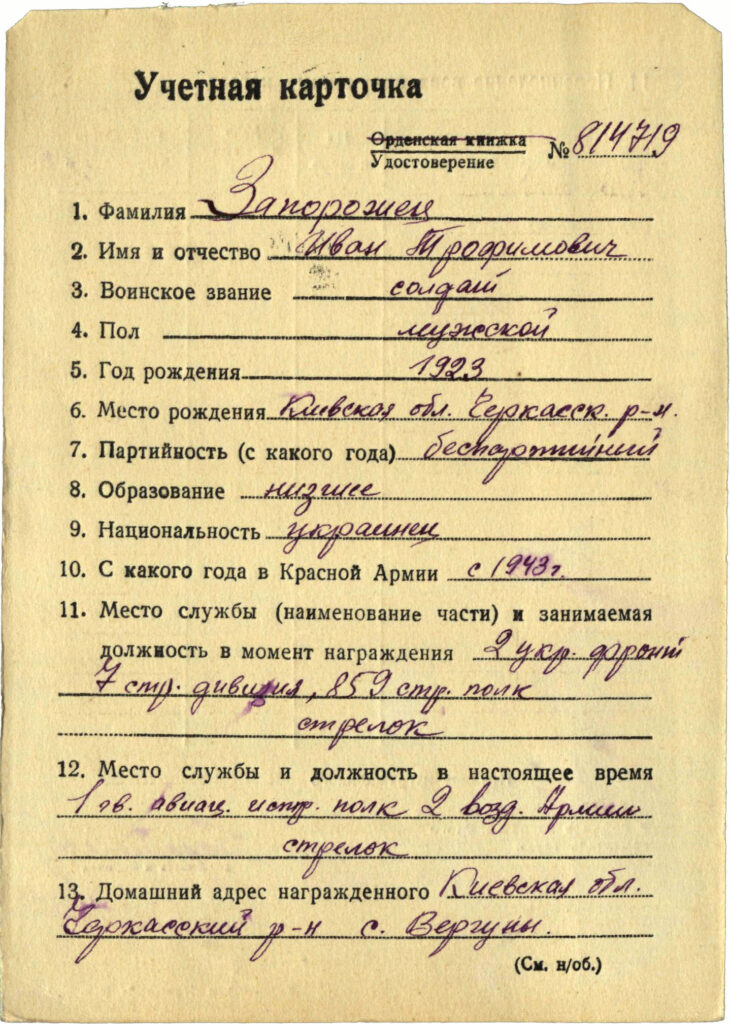 Учетная карточка
Орденская книжка
Удостоверение № 814719
1. Фамилия Запорожец
2. Имя и отчество Иван Трофимович
3. Воинское звание солдат
4. Пол мужской
5. Год рождения 1923
6. Место рождения Киевская обл. Черкасск. р-н.
7. Партийность (с какого года) беспартийный
8. Образование низшее
9. Национальность украинец
10. С какого года в Красной Армии с 1943г.
11. Место службы (наименование части) и занимаемая
должность в момент награждения 2 укр. фронт
7 стр. дивизия, 859 стр. полк
стрелок
12. Место службы и должность в настоящее время
1 гв. авиац. истр. полк 2 возд. Армии
стрелок
13. Домашний адрес награжденного Киевская обл.
Черкасский р-н с. Вергуны.
(См. н/об.)